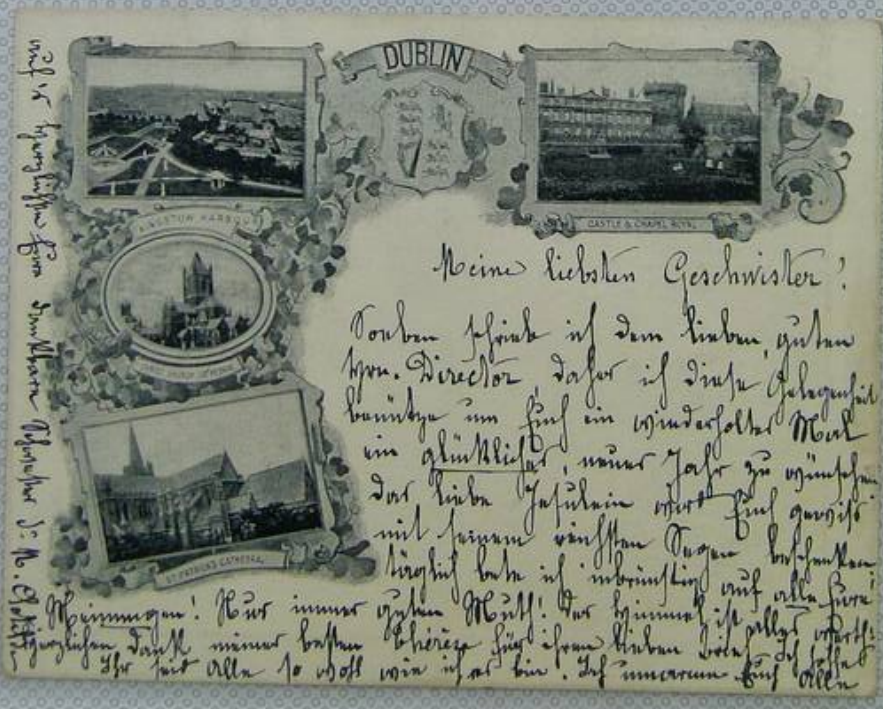 DUBLIN
KINGSTOWN HARBOUR
CASTLE & CHAPEL ROYAL
CHRIST CHURCH CATHEDRAL
ST PATRICKS CATHEDRAL
Meine liebsten Geschwister!
Soeben schrieb ich dem lieben, guten
Hrn. Director, daher ich diese Gelegenheit
benütze um Euch ein wiederholtes Mal
ein glückliches, neues Jahr zu wünschen
das liebe Jesulein wird Euch gewiss
mit seinem reichsten Segen beschenken
täglich bete ich inbrünstig auf alle Eure
Meinungen! Nur immer guten Muth! Der Himmel ist alles werth!
Herzlichen Dank meiner besten Thérèse für ihren lieben Brief. Ich hoffe
Ihr seid alle so wohl wie ich es bin. Ich umarme Euch alle
herzlichste Eure dankbare Schwester